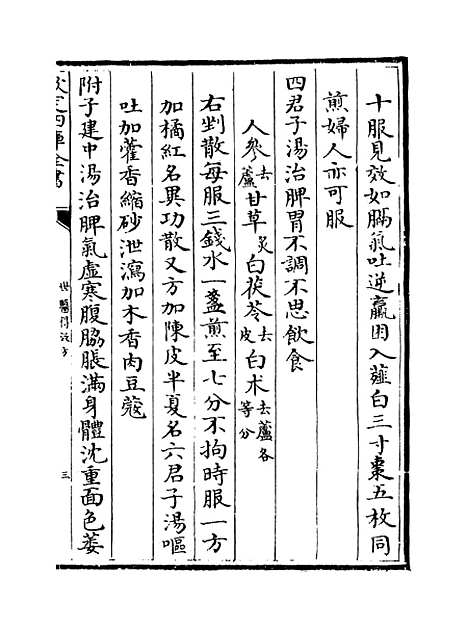 十服見效如膈氣吐逆羸困入薤白三寸棗五枚同
煎婦人亦可服
四君子湯治脾胃不調不思飲食
人參去蘆甘草炙白茯苓去皮白术去蘆各等分
右剉散每服三錢水一盞煎至七分不拘時服一方
加橘紅名異功散又方加陳皮半夏名六君子湯嘔
吐加藿香縮砂泄瀉加木香肉豆蔻
附子建中湯治脾氣虛寒腹脇脹滿身體沈重面色萎
欽定四庫全書
世醫得效方
三